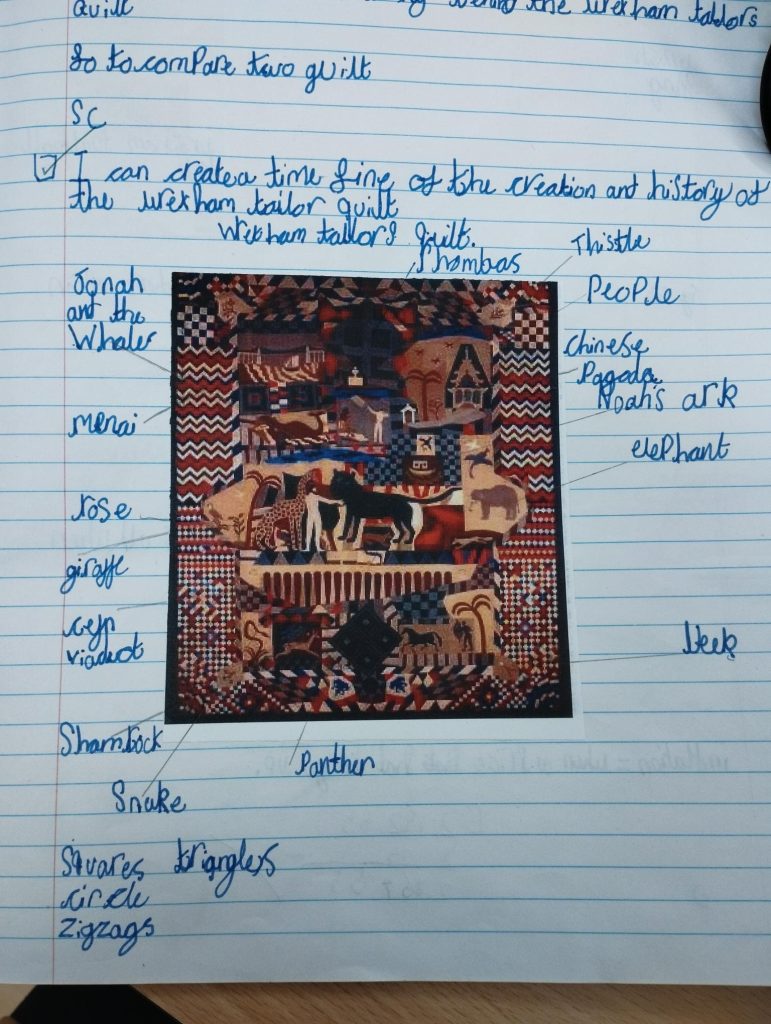 quilt the wrexham tallors
so to compare two quilt
SC
I can create a time line of the creation and history of
the wrexham tailor quilt
Wrexham tallors quilt.
rhombas
Thistle
Jonah
and the
Whale
People
Chinese
Pagoda
Noah's ark
menai
elephant
rose
giraffe
cefn
viaduct
leek
Shamrock
Panther
Snake
Squares triangles
circle
zigzags